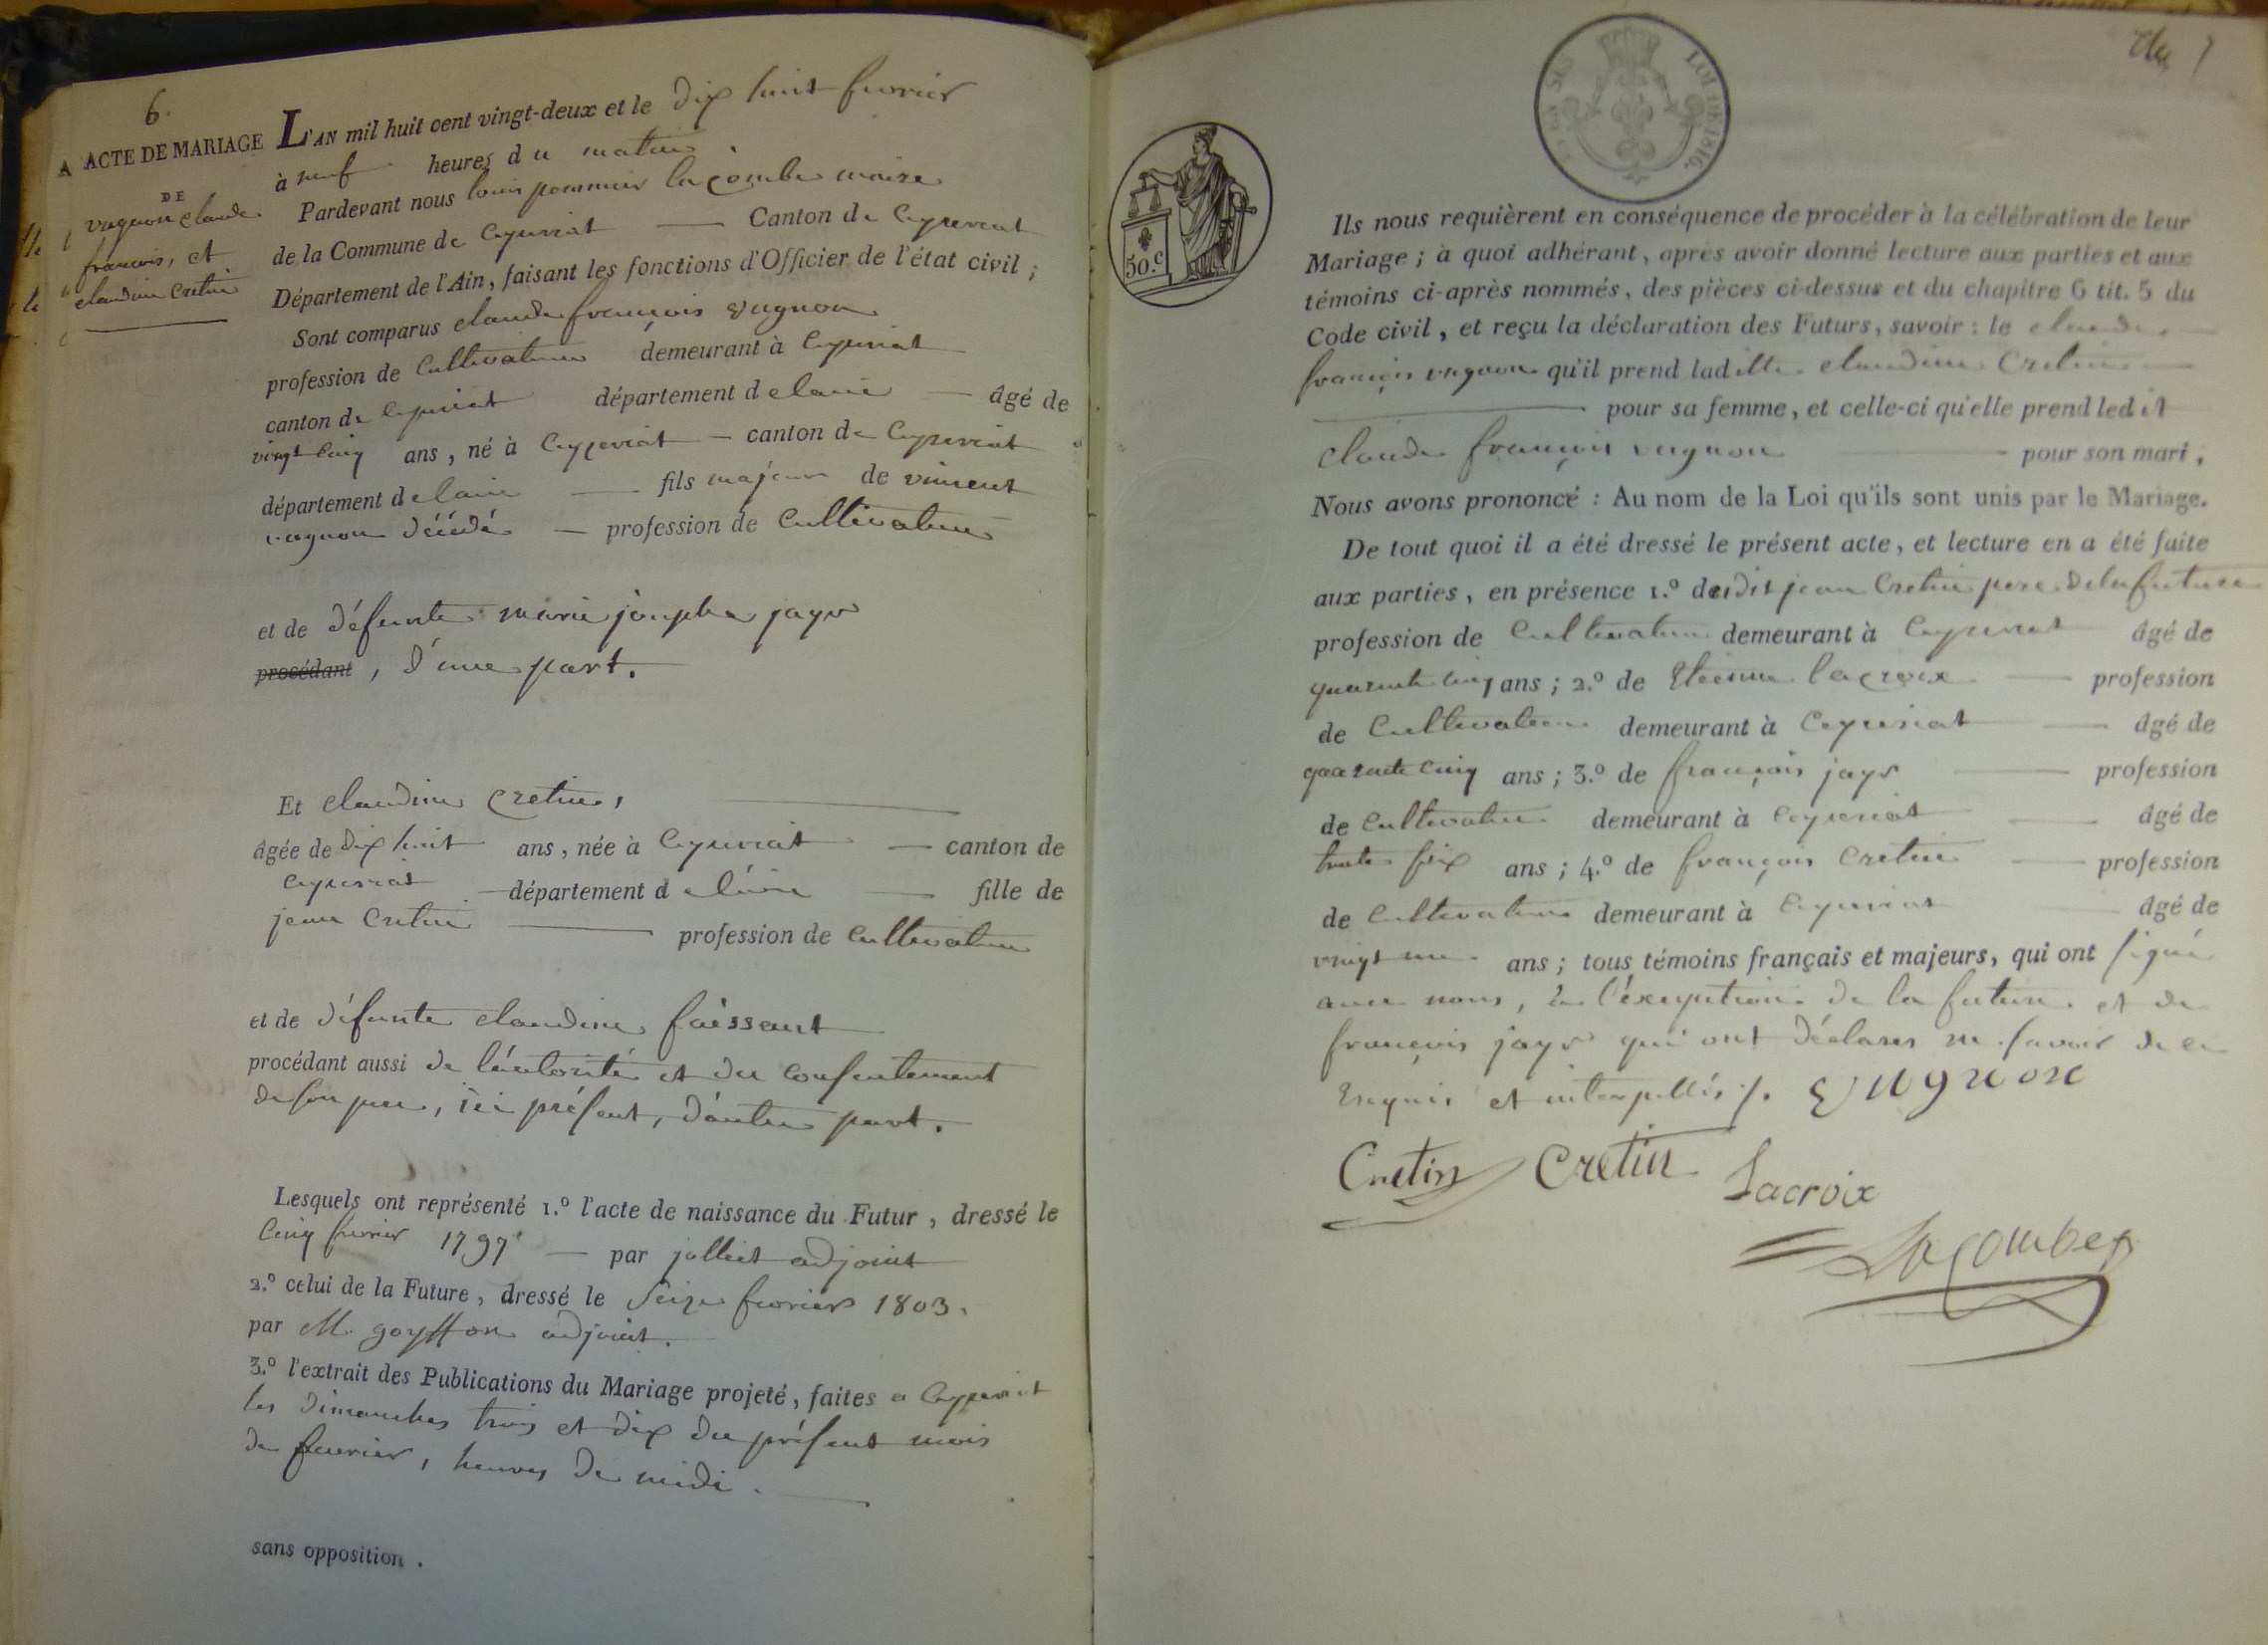 6.
ACTE DE MARIAGE
DE
vugnon claude
françois, et
claudine cretin
L'AN mil huit cent vingt-deux et le dix huit fevrier
à neuf heures du matin
Pardevant nous louis pommier lacombe maire
de la Commune de Ceyzeriat Canton de Ceyzeriat
Département de l'Ain, faisant les fonctions d'Officier de l'état civil ;
Sont comparus claude françois vugnon
profession de Cultivateur demeurant à Ceyzeriat
canton de Ceyzeriat département de lain âgé de
vingt cinq ans, né à Ceyzeriat canton de Ceyzeriat
département de lain fils majeur de vincent
vugnon décédé profession de Cultivateur
et de défunte marie josephe jayr
procédant, d'une part.
Et claudine Cretin,
âgée de dix huit ans, née à Ceyzeriat canton de
Ceyzeriat département de l'ain fille de
jean Cretin profession de Cultivateur
et de défunte claudine faissant
procédant aussi de l'autorité et du consentement
de son pere, ici présent, d'autre part.
Lesquels ont représenté 1.º l'acte de naissance du Futur, dressé le
Cinq fevrier 1797 par adjoint
2.º celui de la Future, dressé le Seize fevrier 1803.
par M. goyffon adjoint.
3.º l'extrait des Publications du Mariage projeté, faites a Ceyzeriat
les dimanches trois et dix du présent mois
de fevrier, heures de midi.
sans opposition.
LOI DE 1816.
50.c
Ils nous requièrent en conséquence de procéder à la célébration de leur
Mariage ; à quoi adhérant, après avoir donné lecture aux parties et aux
témoins ci-après nommés, des pièces ci-dessus et du chapitre 6 tit. 5 du
Code civil, et reçu la déclaration des Futurs, savoir : le claude
françois vugnon qu'il prend ladite claudine Cretin
pour sa femme, et celle-ci qu'elle prend ledit
claude françois vugnon pour son mari,
Nous avons prononcé : Au nom de la Loi qu'ils sont unis par le Mariage.
De tout quoi il a été dressé le présent acte, et lecture en a été faite
aux parties, en présence 1.º dudit jean Cretin pere de la future
profession de Cultivateur demeurant à Ceyzeriat âgé de
quarante cinq ans ; 2.º de Etienne lacroix profession
de Cultivateur demeurant à Ceyzeriat âgé de
quarante cinq ans ; 3.º de françois jayr profession
de Cultivateur demeurant à Ceyzeriat âgé de
trente six ans ; 4.º de françois Cretin profession
de Cultivateur demeurant à Ceyzeriat âgé de
vingt un ans ; tous témoins français et majeurs, qui ont signé
avec nous, à l'exception de la future et de
françois jayr qui ont déclarés ne savoir de ce
enquis et interpellés /. vugnon
Cretin Cretin Lacroix
Lacombe